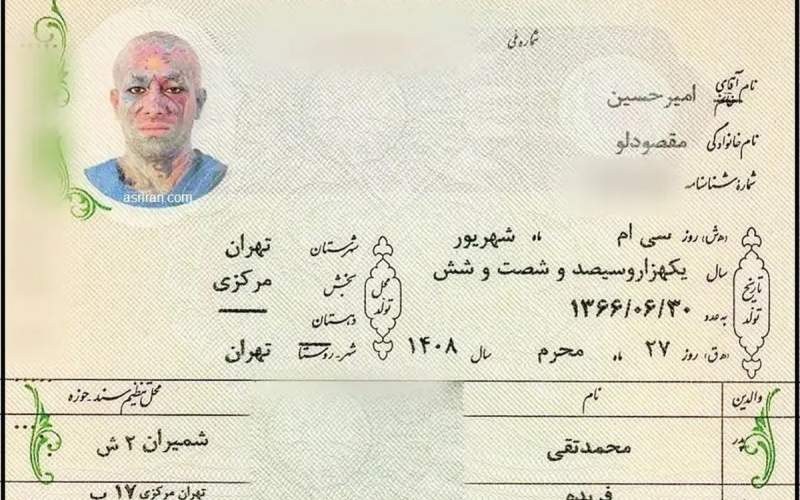 شماره ملی
نام آقای خانم امیرحسین
نام خانوادگی مقصودلو
شماره شناسنامه
asriran.com
تاریخ تولد
(ه.ش) روز سی ام ماه شهریور
سال یکهزاروسیصد و شصت و شش
به عدد ۱۳۶۶/۰۶/۳۰
(ه.ق) روز ۲۷ ماه محرم سال ۱۴۰۸
محل تولد
شهرستان تهران
بخش مرکزی
دهستان
شهر-روستا تهران
والدین نام محل تنظیم سند-حوزه
پدر محمدتقی شمیران ۲ ش
فریده تهران مرکزی ۱۷ ب